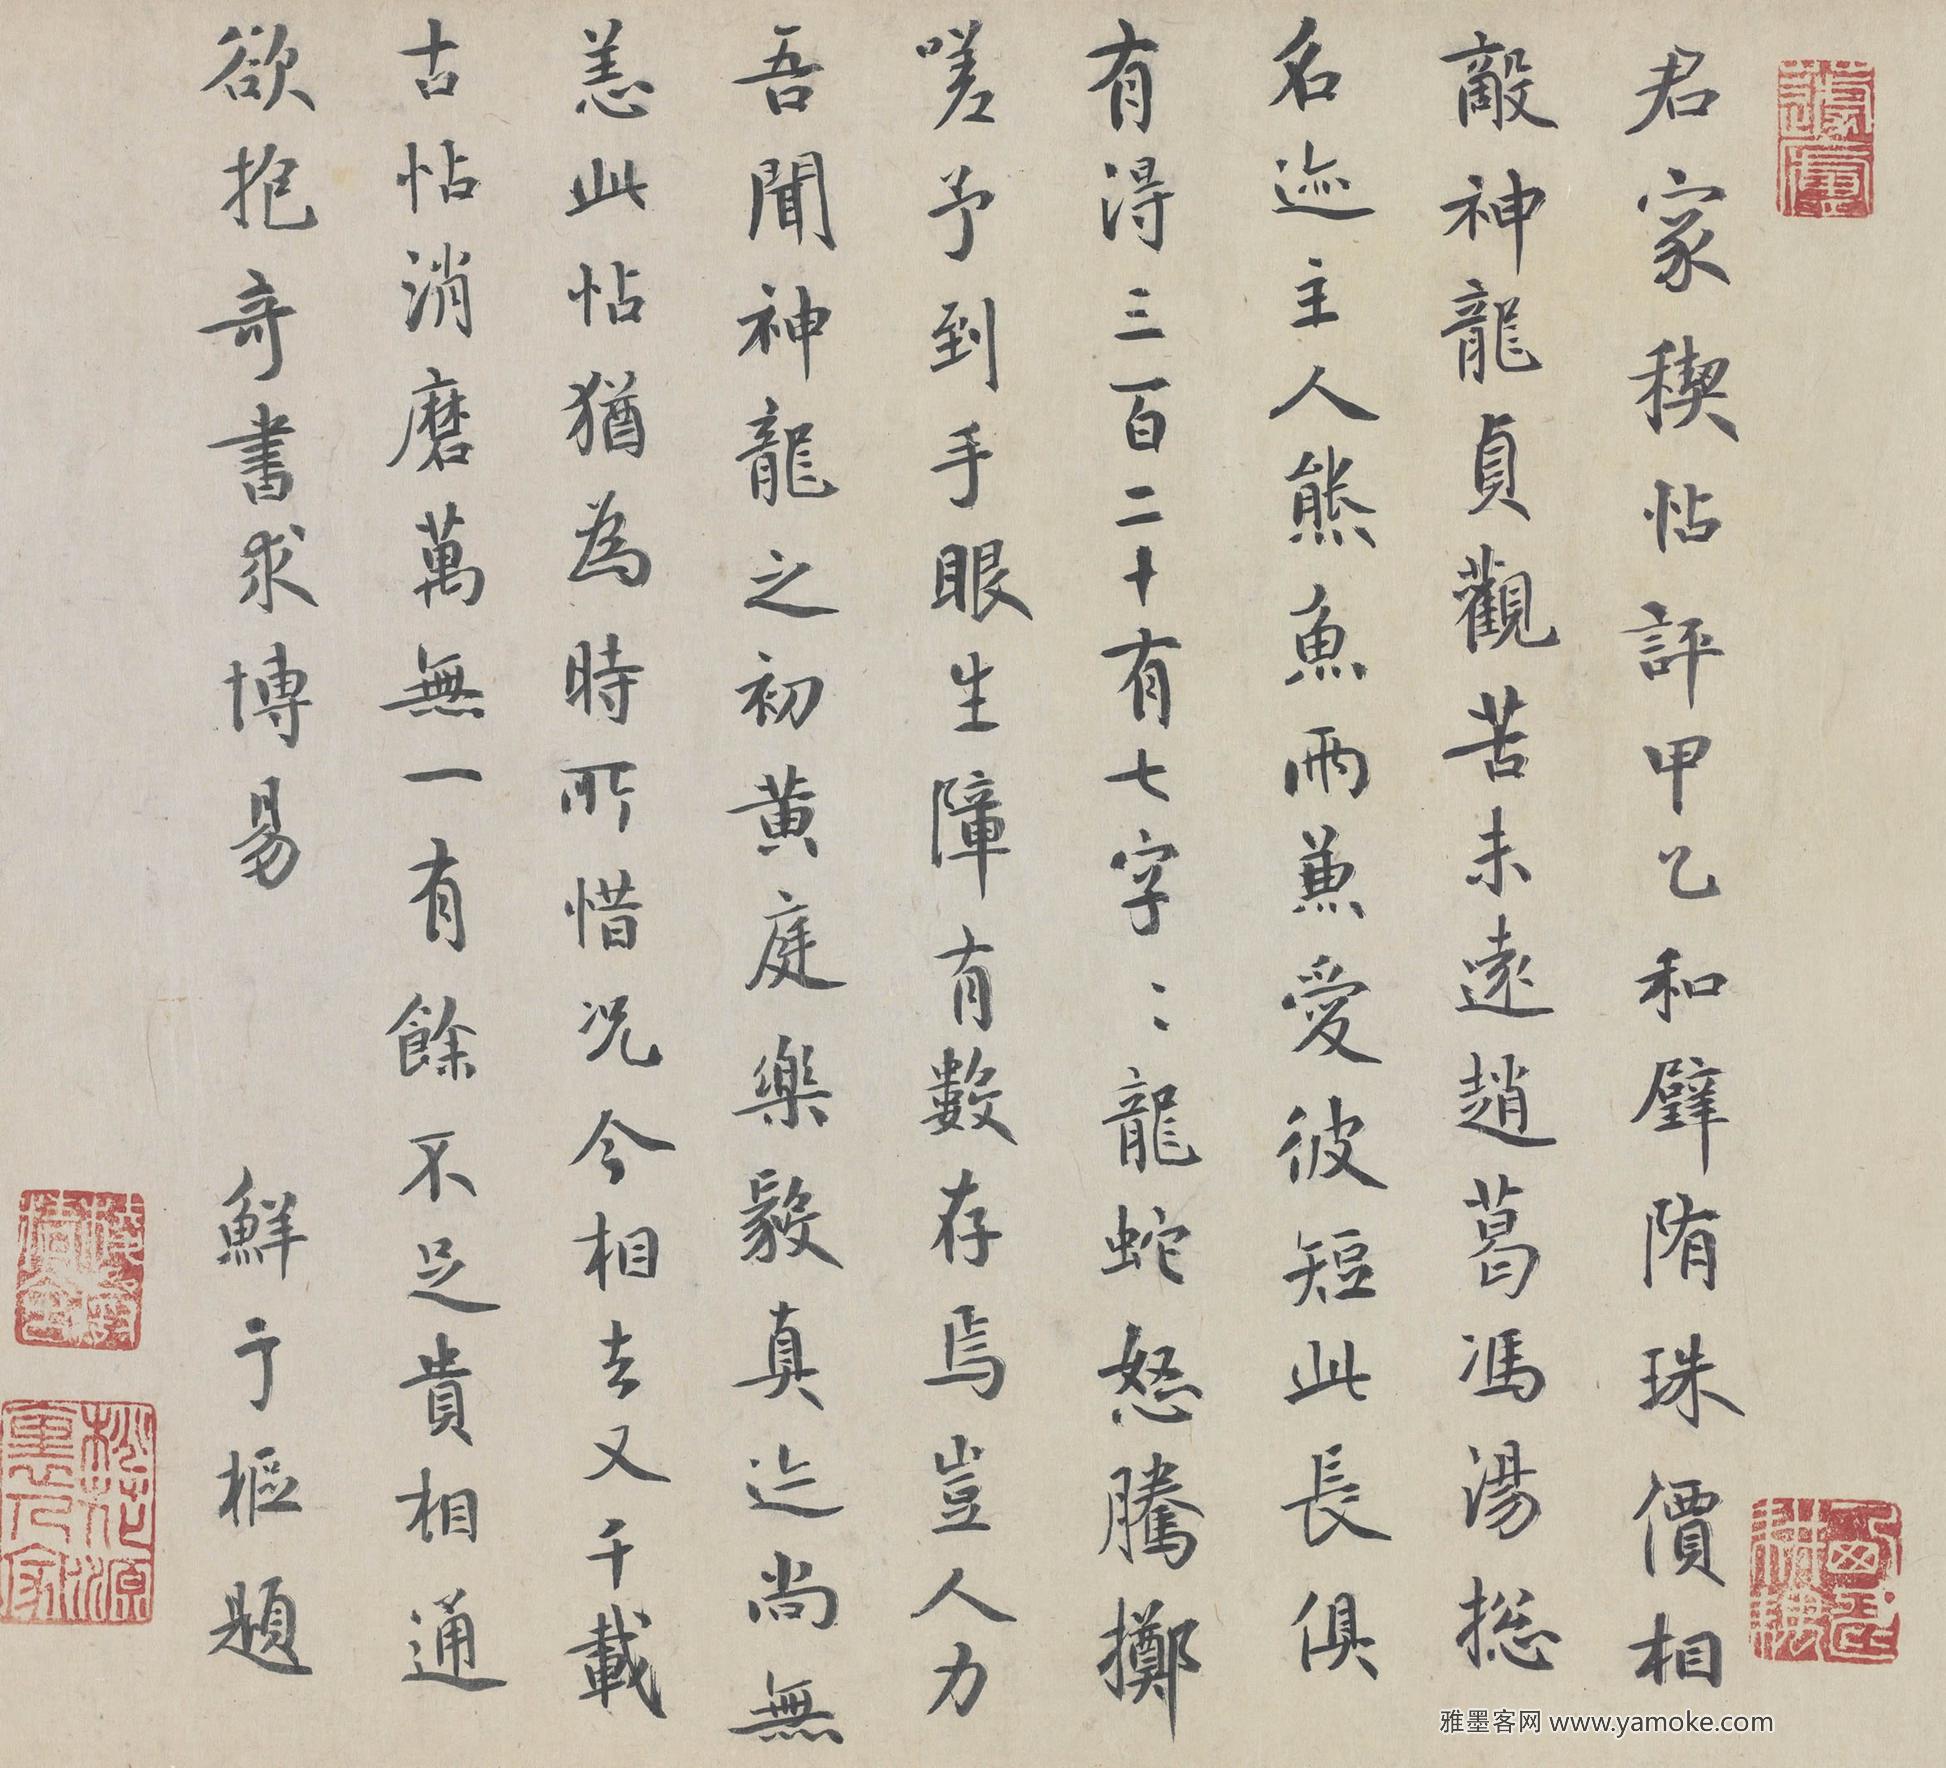 君家稧帖評甲乙和璧隋珠價相
敵神龍貞觀苦未遠趙葛馮湯揔
名迹主人熊魚兩兼愛彼短此長俱
有得三百二十有七字〻〻龍蛇怒騰擲
嗟予到手眼生障有數存焉豈人力
吾聞神龍之初黄庭樂毅真迹尚無
恙此帖猶為時所惜况今相去又千載
古帖消磨萬無一有餘不足貴相通
欲抱奇書求博易 鮮于樞題
雅墨客网 www.yamoke.com